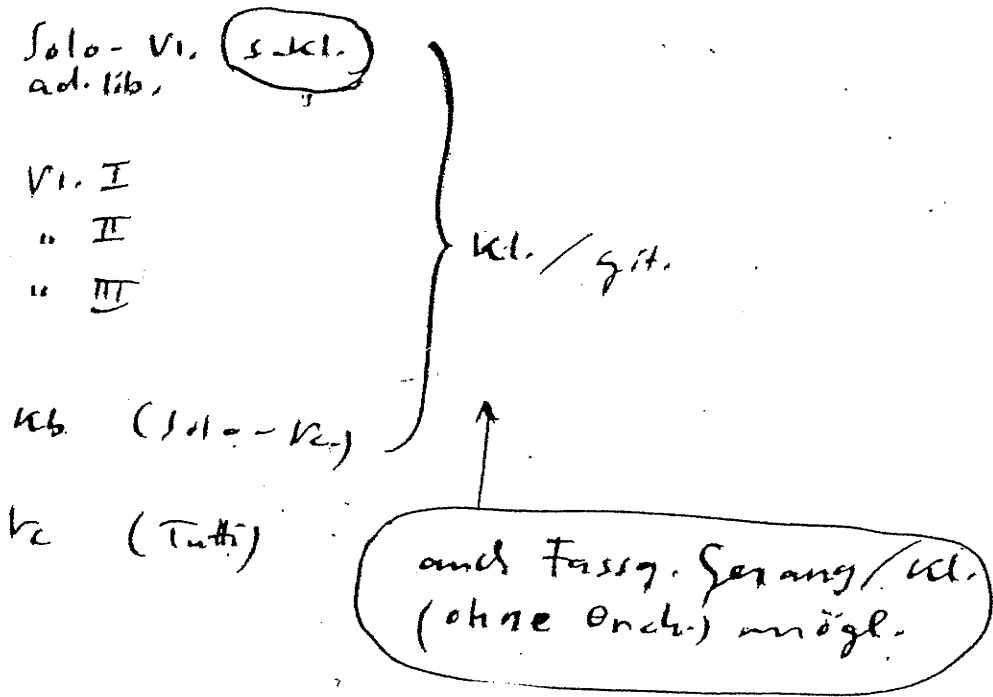 Solo-Vl. s. Kl.
ad. lib.
Vl. I
" II
" III
Kl. / Git.
Kb (Solo-Vc.)
Vc (Tutti)
auch Fassg. Gesang/Kl.
(ohne Orch.) mögl.